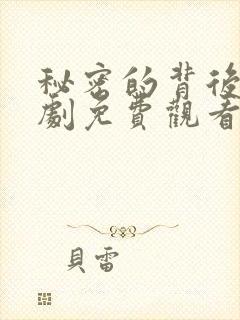 秘密的背後
劇免費觀看
貝雷